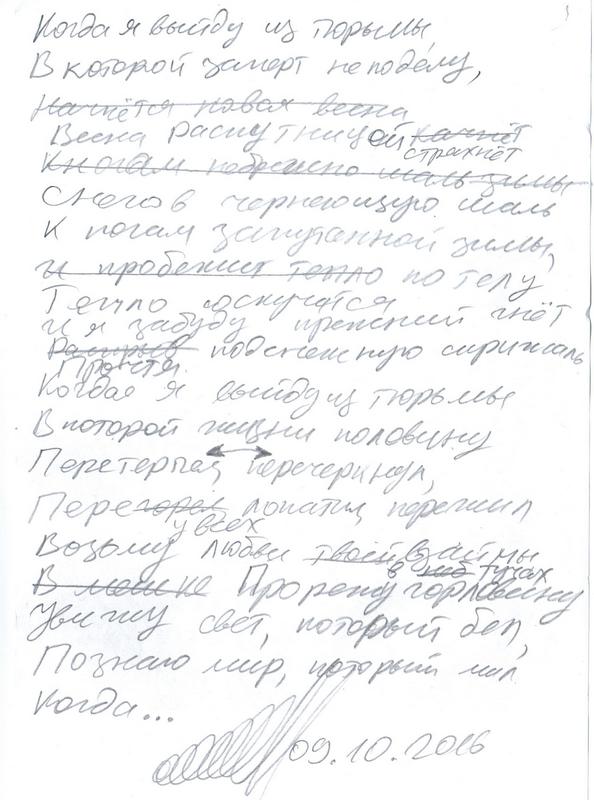 Когда я выйду из тюрьмы
В которой заперт не по делу,
Начнётся новая весна
Весна распутницей начнёт
стряхнёт
К ногам небрежно шаль зимы
Снегов чернеющую шаль
К ногам запутанной зимы,
и пробежит тепло по телу
Тепло
и я забуду прежний гнёт
подснежную скрижаль
Прочтя
Когда я выйду из тюрьмы
В которой жизни половину
Перетерпел, перечеркнул,
Перегорел лопатил, пережил
у всех
Возьму любви твоей взаймы
в неб тучах
В мешке Прорежу горловину
Увижу свет, который бел,
Познаю мир, который мил
Когда...
09.10.2016